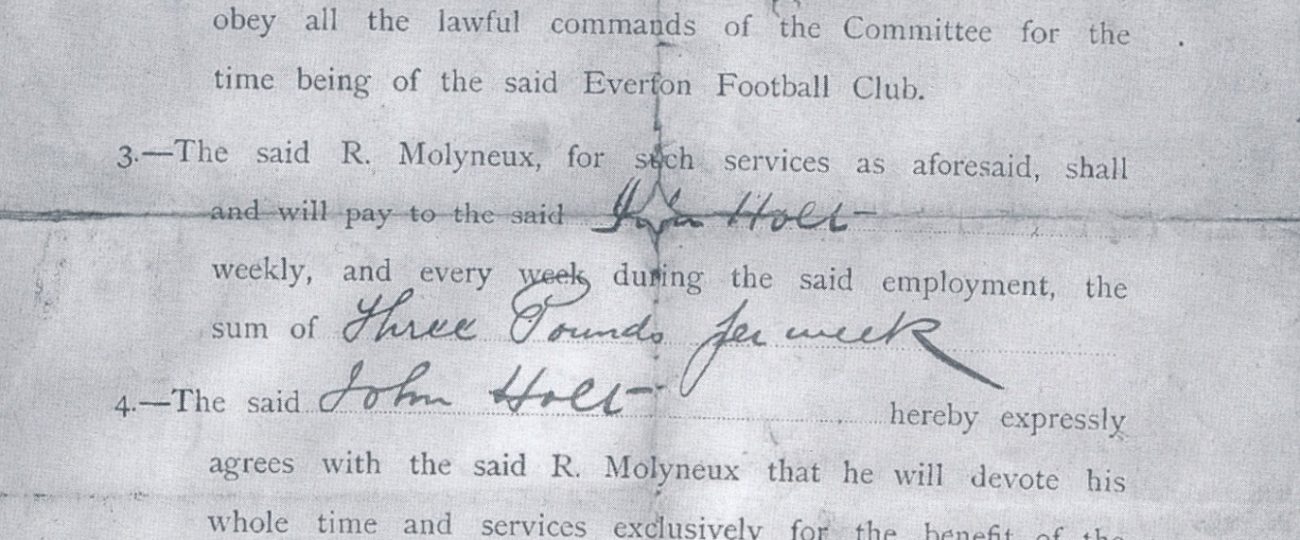 obey all the lawful commands of the Committee for the
time being of the said Everton Football Club.
3.—The said R. Molyneux, for such services as aforesaid, shall
and will pay to the said John Holt
weekly, and every week during the said employment, the
sum of Three Pounds per week
4.—The said John Holt hereby expressly
agrees with the said R. Molyneux that he will devote his
whole time and services exclusively for the benefit of the